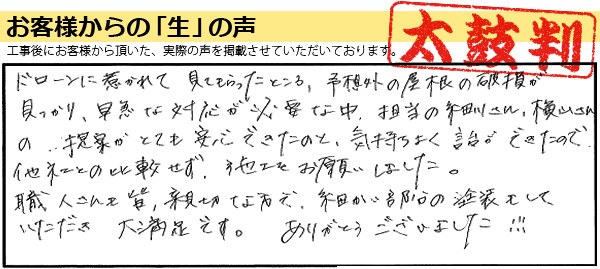 お客様からの「生」の声
工事後にお客様から頂いた、実際の声を掲載させていただいております。
太鼓判
ドローンに惹かれて見てもらったところ、予想外の屋根の破損が
見つかり、早急な対応が必要な中、担当の細川さん、横山さん
の、提案がとても安心できたのと、気持ちよく話ができたので、
他社との比較せず、施工をお願いしました。
職人さんも皆、親切な方で、細かい部分の塗装もして
いただき 大満足です。 ありがとうございました!!!